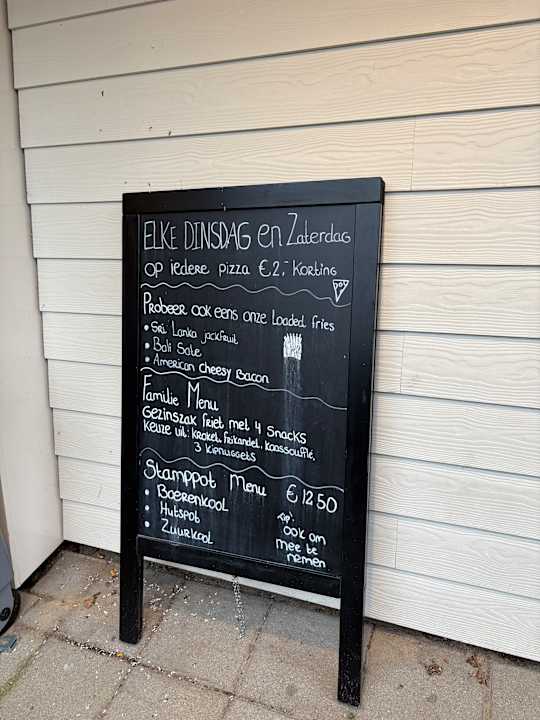 ELKE DINSDAG en Zaterdag
op iedere pizza € 2,- Korting
Probeer ook eens onze Loaded fries
• Sri Lanka jackfruit
• Bali Sate
• American cheesy Bacon
Familie Menu
Gezinszak friet met 4 snacks
keuze uit: kroket, frikandel, kaassoufflé,
3 kipnuggets
Stamppot Menu € 12.50
• Boerenkool
• Hutspot
• Zuurkool
Tip!
ook om
mee te
nemen